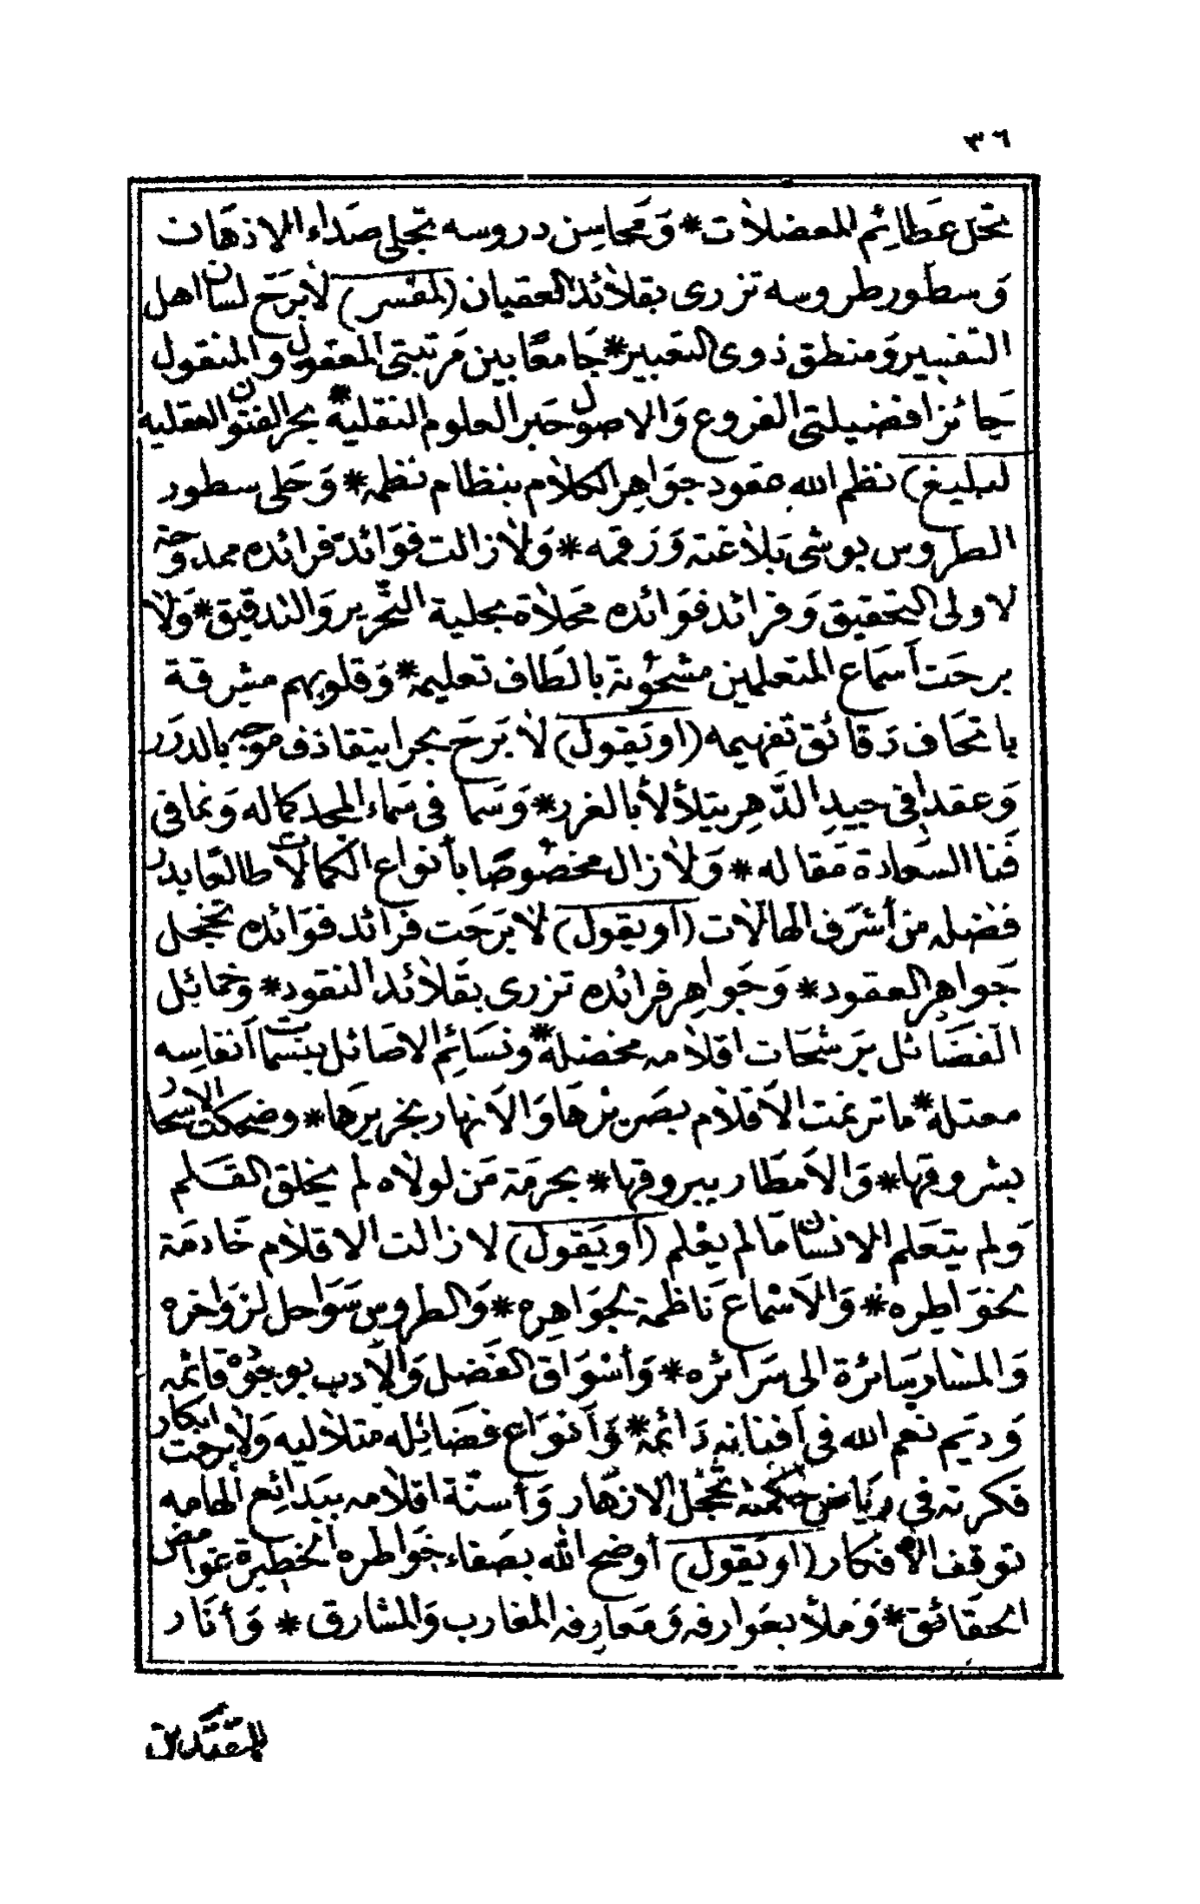 ٣٦
تحل عَظائِم المعضلات * وَمحَاسِن دروسه تجلى صَدَاء الاذهَان
وَسطور طروسه تزرى بقلائد العقيان (لمفسر) لا بَرَحَ لسان اهل
التفسير وَمنطق ذوى التعبير * جَامعًا بين مَرتبتى المعقول والمنقول
حَائز افضيلتى الفروع وَالاصول حبر العلوم النقلية * بحر الفنون العقليه
لبليغ) نظم الله عقود جوَاهر الكلام بنظام نظمه * وَحَلى سطور
الطروس بوشى بَلاغته وَرَقمه * وَلازالت فوَائد فرائده ممدوحة
لاولى التحقيق وَفرائد فوَائده محَلاة بحلية التحرير وَالتدقيق * وَلا
برحَت أسمَاع المتعلمين مشحُونة بالطَاف تعليمه * وَقلوبهم مشرقة
باتحَاف دَقائق تفهيمه (اويَقول) لا بَرحَ بحرا يتقاذف موجه بالدرَر
وَعقدا في جيدِ الدَّهر يتلألأ بالغرر * وَسَما في سَماء المجد كماله وَنما في
فَنا السعَادة مَقاله * وَلازال مخصُوصًا بأنواع الكمالات طالعَا بدر
فضله من أشرَف الهالات (اويقول) لا بَرحَت فرَائد فوَائده تخجل
جَواهر العقود * وَجَواهر فرائده تزرى بقَلائد النقود * وخمائل
الفضَائل برَشحَات اقلامه مخضله * ونسَائِم الاصَائل بنسمات أنفاسِه
معتله * ما ترنمت الاَقلام بصَريرهَا وَالاَنهار بخريرَها * وضحكت الاسحار
بشروقها * وَالاَمطَار ببروقها * بحرمَة مَن لولاه لم يخلق القَلم
وَلم يتعَلم الانسَان مَالم يعْلم (أويَقول) لا زالت الاقلام خَادمَة
لخوَاطِره * وَالاَسْماع نَاظمة لجوَاهِره * وَالطروس سَوَاحل لزوَاخره
وَالمسَار سَائرة الى سَرائره * وَأسْوَاق الفَضل وَالاَدب بوجُوه قائمه
وَديَم نعم الله فى أفنانه دَائمة * وَأنوَاع فضَائِله متلالية وَلابرحت ابكار
فكرته فى ريَاض حكمته تُخْجل الازهَار وَأسنّة اقلامه ببَدائع الهامه
توقف الافكار (اويَقول) أوضحَ الله بصَفاء خَواطره الخطيرة غوامض
الحقَائق * وَمَلأ بعَوارفه وَمعَارفه المغارب وَالمشارق * وَأنَار